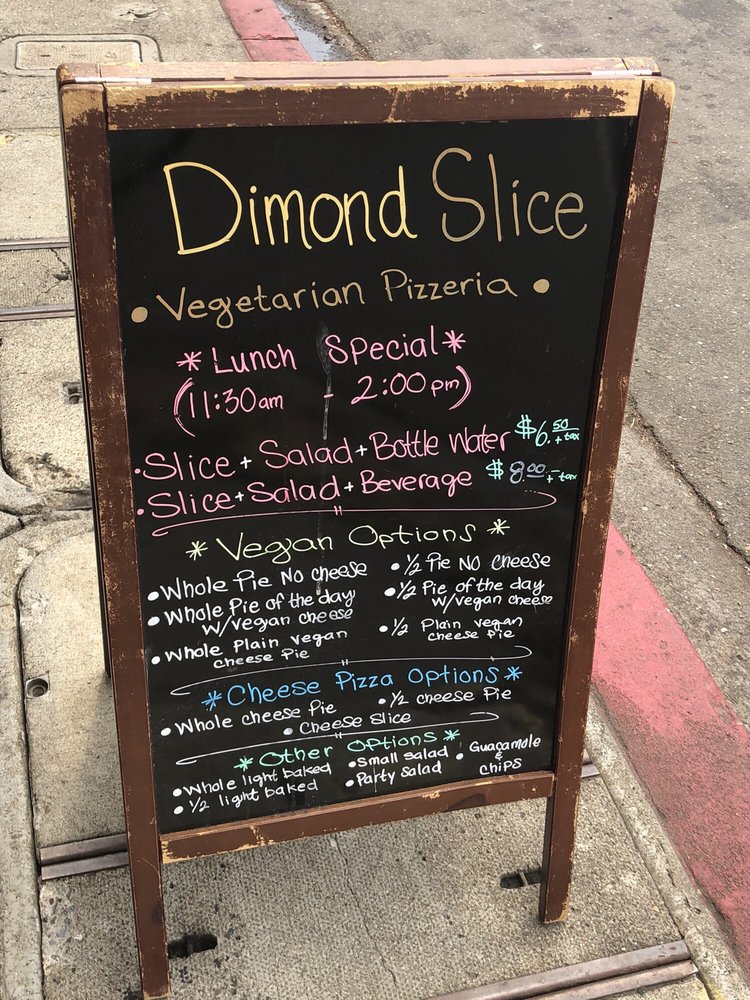 Dimond Slice
• Vegetarian Pizzeria •
* Lunch Special *
(11:30am - 2:00pm)
• Slice + Salad + Bottle Water $6.50 + tax
• Slice + Salad + Beverage $8.00 + tax
* Vegan Options *
• Whole Pie No cheese
• Whole Pie of the day
w/vegan cheese
• Whole Plain vegan
cheese Pie
• 1/2 Pie No Cheese
• 1/2 Pie of the day
w/vegan cheese
• 1/2 Plain vegan
cheese Pie
* Cheese Pizza Options *
• Whole cheese Pie
• 1/2 cheese Pie
• Cheese Slice
* Other Options *
• Whole light baked
• 1/2 light baked
• Small salad
• Party salad
• Guacamole
&
chips